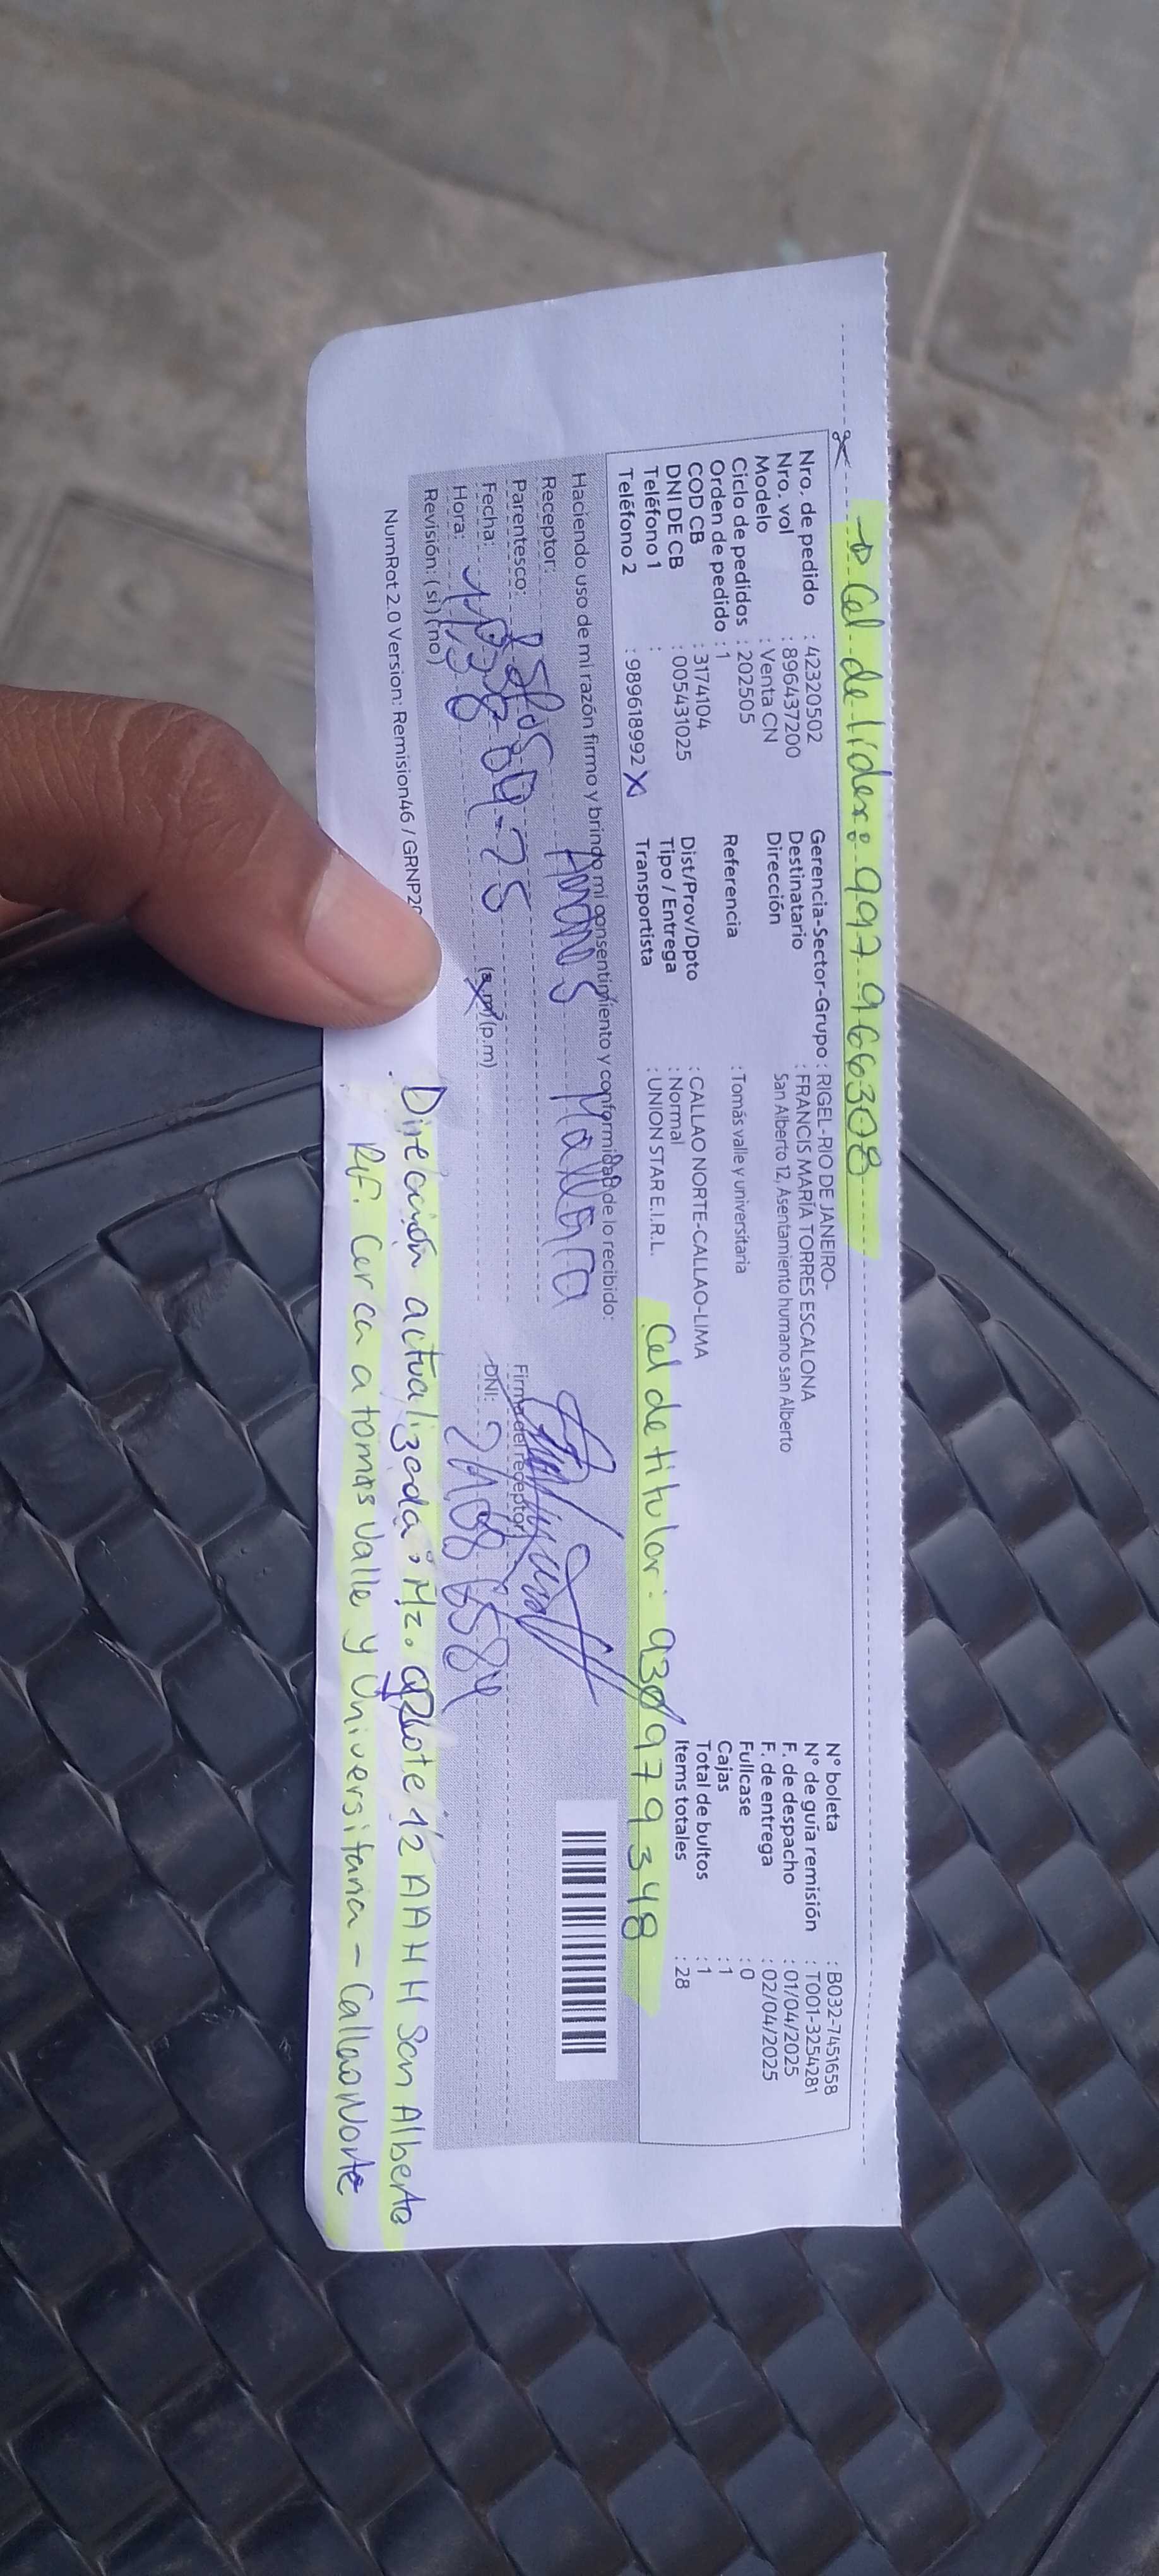 → Cel de lider: 997 966308
Nro. de pedido : 42320502
Nro. vol : 896437200
Modelo : Venta CN
Ciclo de pedidos : 202505
Orden de pedido : 1
COD CB : 3174104
DNI DE CB : 005431025
Teléfono 1 :
Teléfono 2 : 989618992 X
Gerencia-Sector-Grupo : RIGEL-RIO DE JANEIRO-
Destinatario : FRANCIS MARIA TORRES ESCALONA
Dirección San Alberto 12, Asentamiento humano san Alberto
Referencia : Tomás valle y universitaria
Dist/Prov/Dpto : CALLAO NORTE-CALLAO-LIMA
Tipo / Entrega : Normal
Transportista : UNION STAR E.I.R.L.
N° boleta : B032-7451658
N° de guía remisión : T001-3254281
F. de despacho : 01/04/2025
F. de entrega : 02/04/2025
Fullcase : 0
Cajas : 1
Total de bultos : 1
Items totales : 28
Cel de titular: 930979348
Haciendo uso de mi razón firmo y brindo mi consentimiento y conformidad de lo recibido:
Receptor:
Parentesco:
Fecha:
Hora: (a.m) (p.m)
Revisión: (si) (no)
Firma del receptor
DNI:
NumRot 2.0 Version: Remision46 / GRNP20
Dirección actualizada: Mz. Lote 12 AAHH San Alberto
Rif. Cerca a tomas valle y Universitaria - Callao Norte